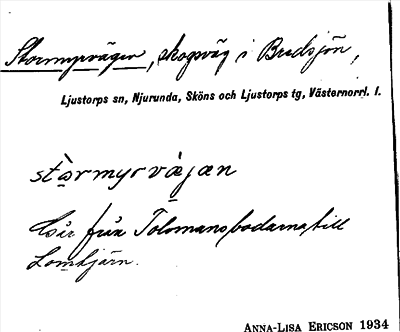 Stormyrvägen, skogsväg i Bredsjön,
Ljustorps sn, Njurunda, Sköns och Ljustorps tg, Västernorrl. l.
stòrmyrvæ̀jæn
Går från Tolomansbodarna till
Lomtjärn.
ANNA-LISA ERICSON 1934